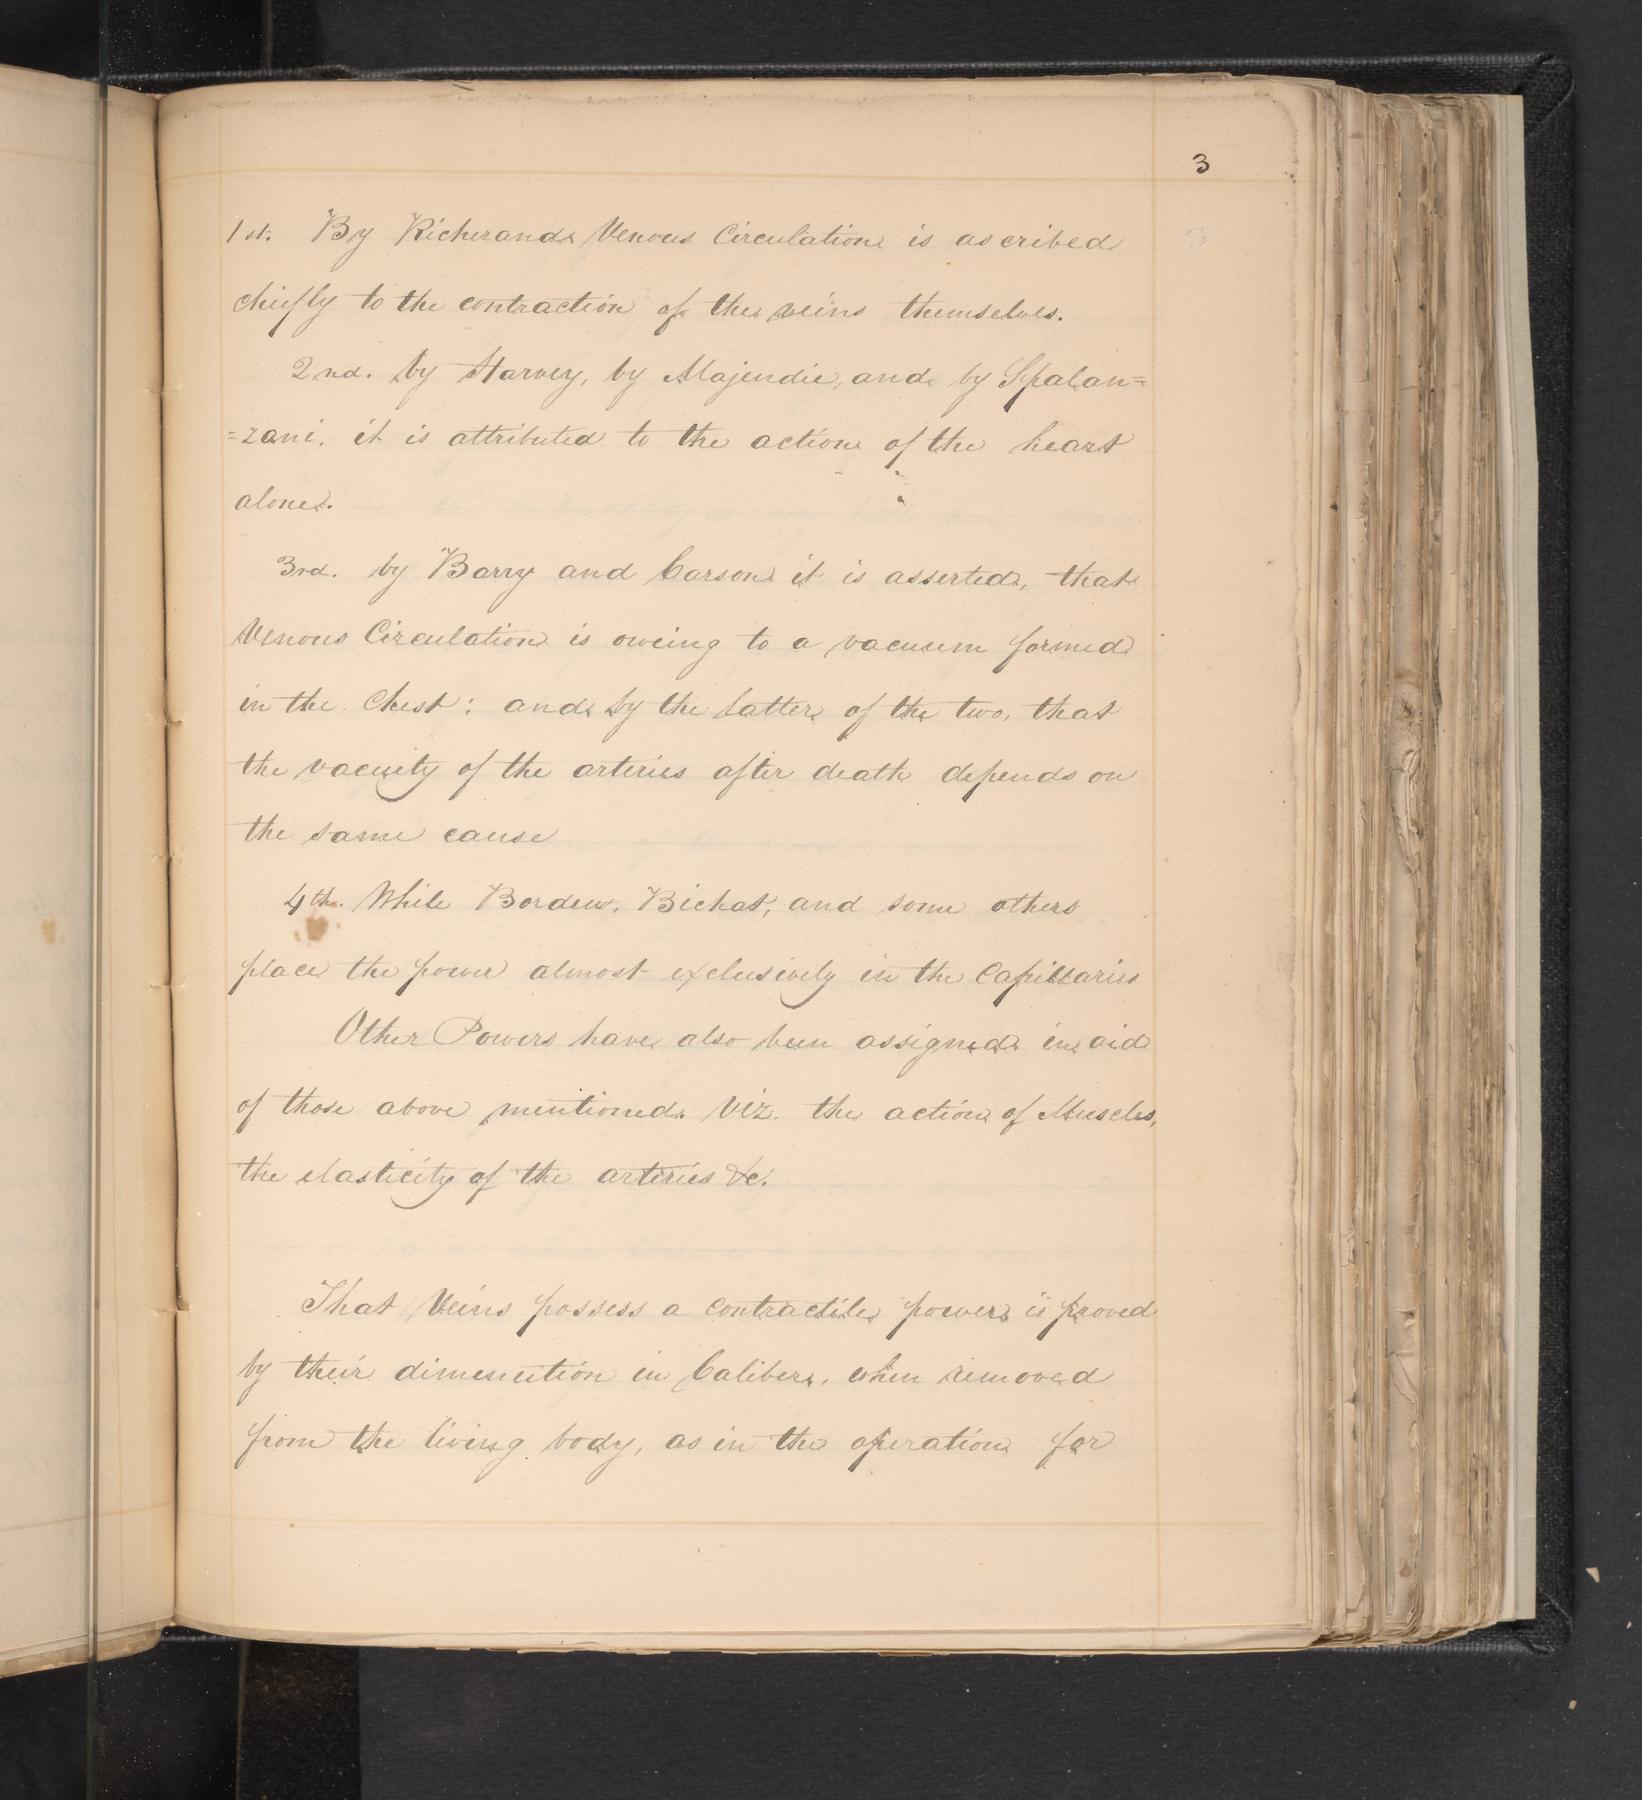 3
1st. By Richerand Venous Circulation is ascribed
chiefly to the contraction of the veins themselves.
2nd. by Harvey, by Majendie, and by Spalan=
=zani. it is attributed to the action of the heart
alone.
3rd. by Barry and Carson it is asserted, that
Venous Circulation is oweing to a vacuum formed
in the Chest: and by the latter of the two, that
the vacuity of the arteries after death depends on
the same cause
4th. While Bordeu, Bichat, and some others
place the power almost exclusively in the Capillaries
Other Powers have also been assigned in aid
of those above mentioned. Viz. the action of Muscles,
the elasticity of the arteries &c.
That Veins possess a contractile power is proved
by their dimenution in Caliber, when removed
from the living body, as in the operation for